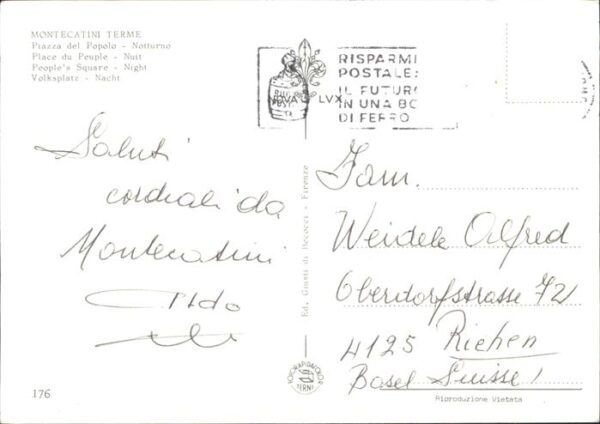 MONTECATINI TERME
Piazza del Popolo - Notturno
Place du Peuple - Nuit
People's Square - Night
Volksplatz - Nacht
RISPARMI
POSTALE:
IL FUTURO
IN UNA BO
DI FERRO
NOVA LVX
Saluti
cordiali da
Montecatini
Aldo
Ed. Giusti di Becocci - Firenze
Fam.
Weidele Alfred
Oberdorfstrasse 72
4125 Riehen
Basel Suisse!
FOTORAPIDACOLOR
TERNI
176
Riproduzione Vietata